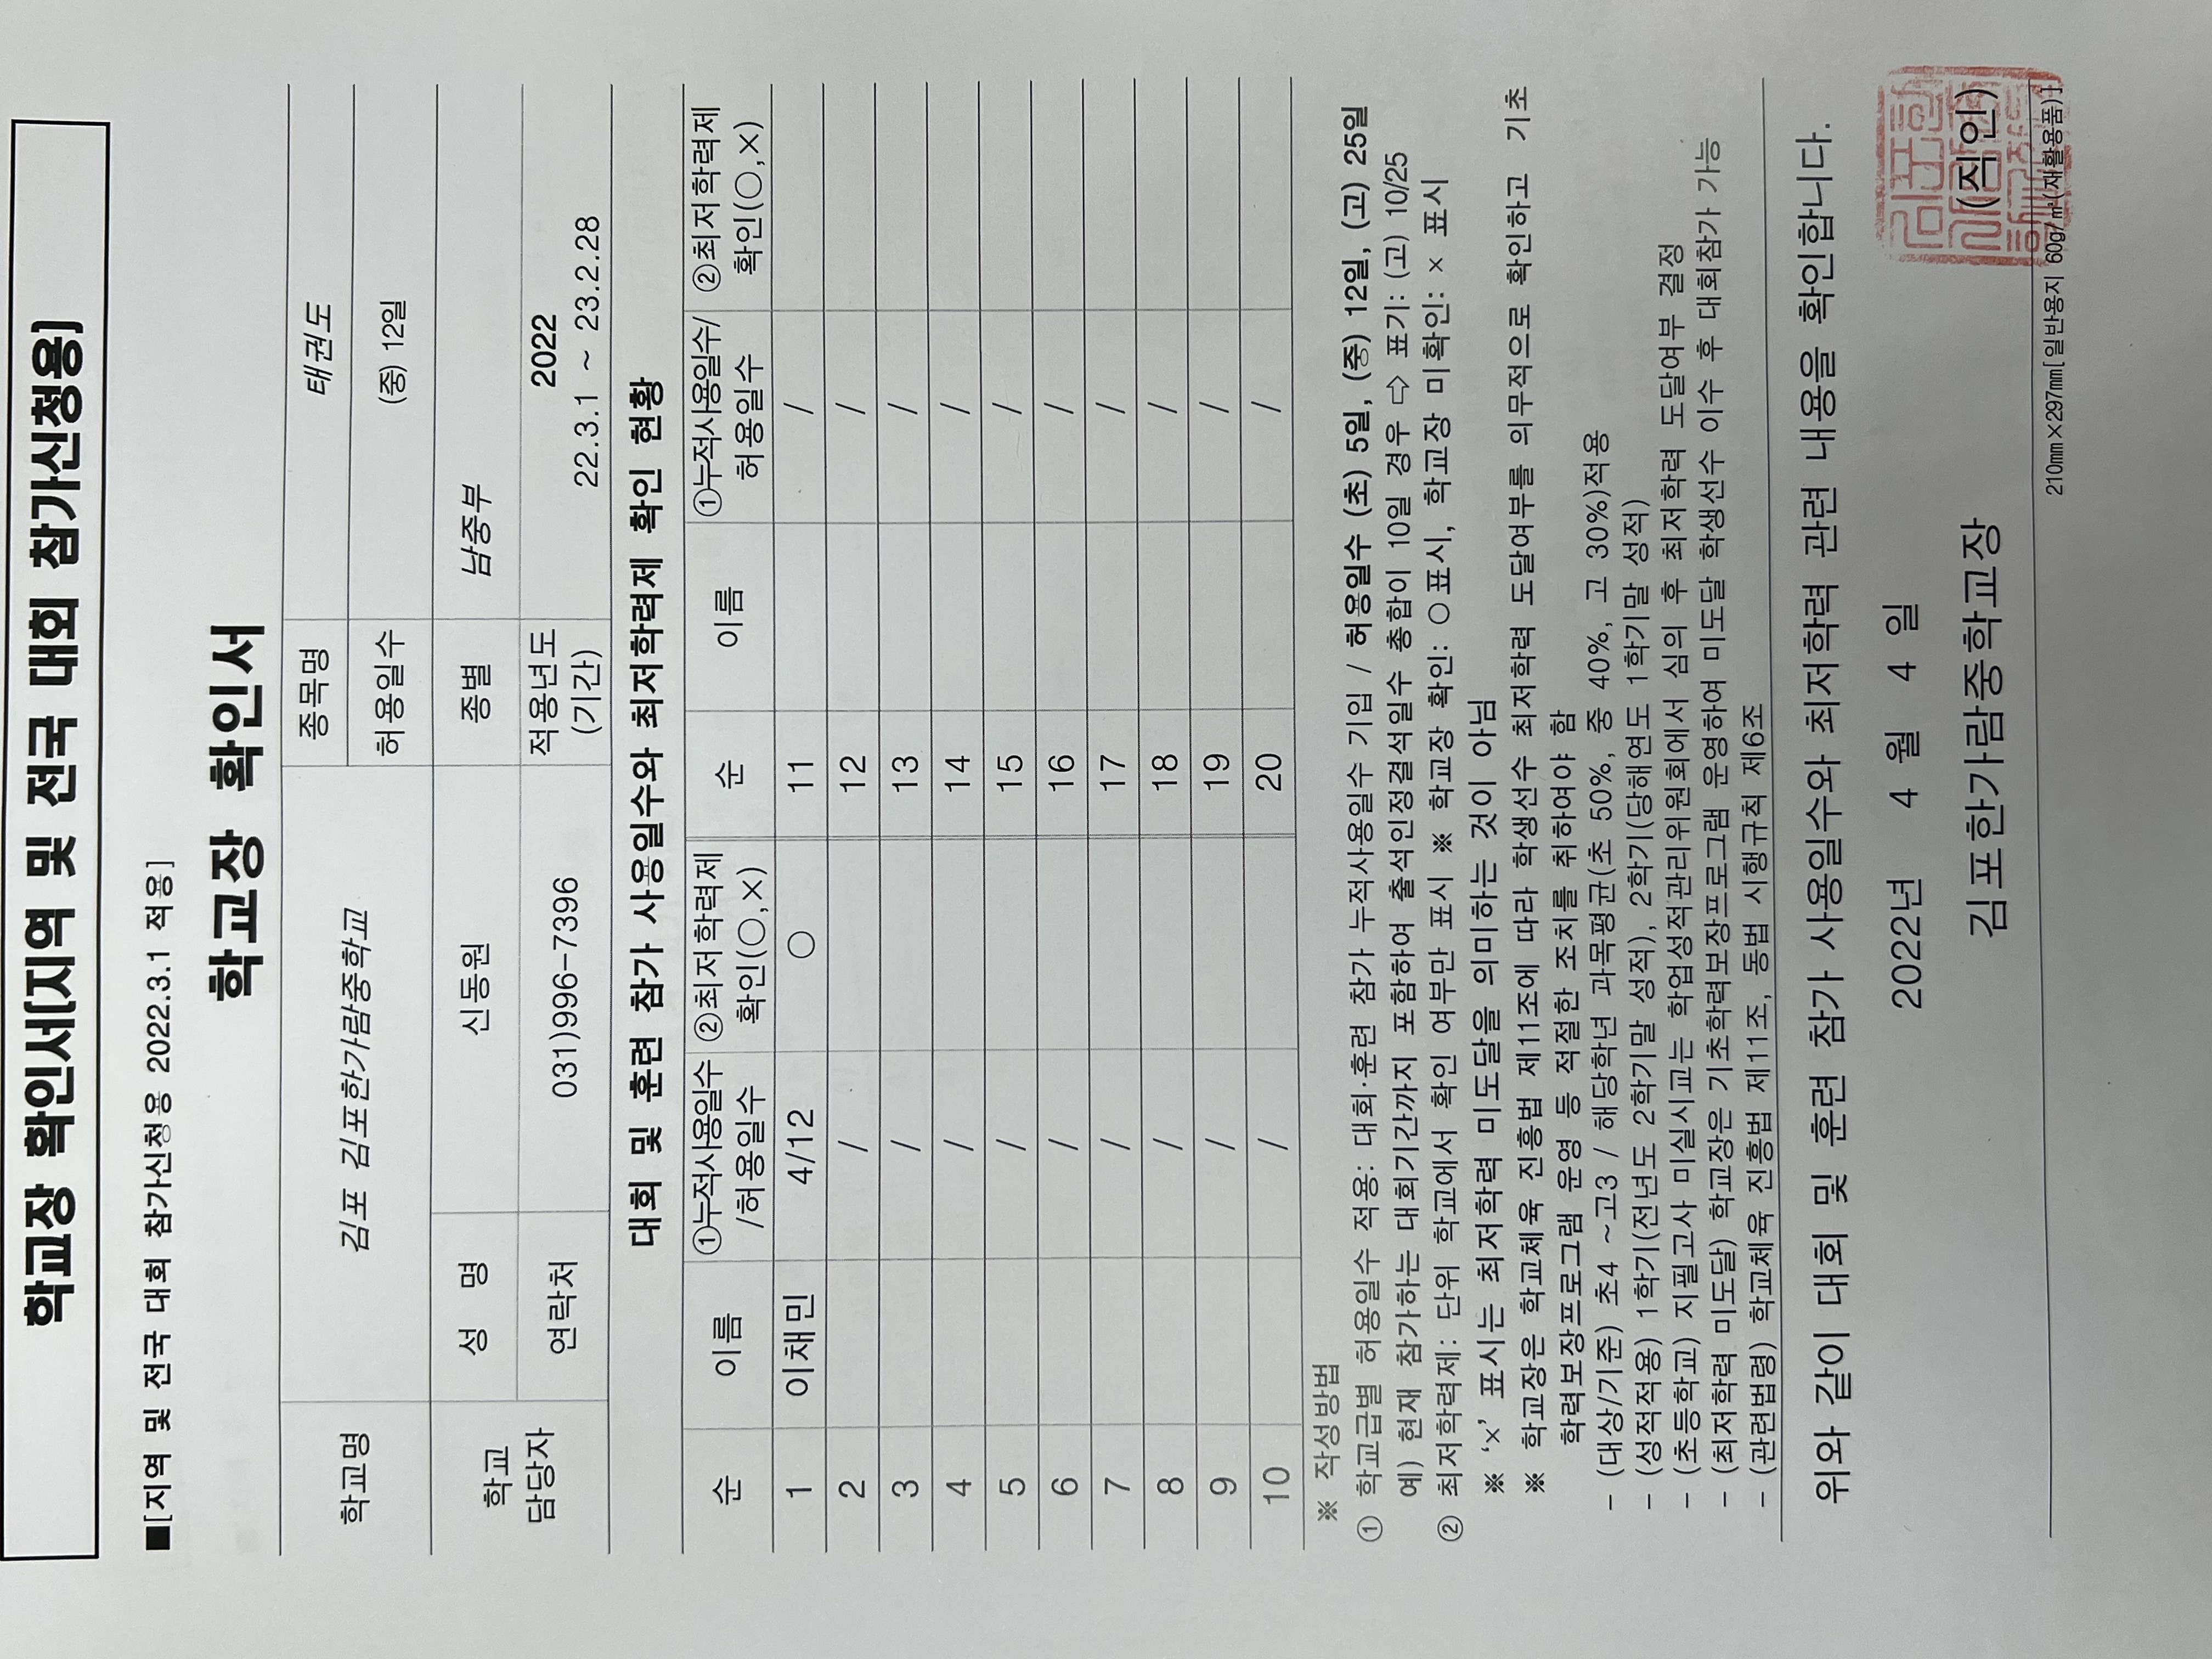 학교장 확인서[지역 및 전국 대회 참가신청용]
■[지역 및 전국 대회 참가신청용 2022.3.1 적용]
학교장 확인서
학교명 김포 김포한가람중학교 종목명 태권도
허용일수 (중) 12일
학교 담당자 성 명 신동원 종별 남중부
연락처 031)996-7396 적용년도 (기간) 2022
22.3.1 ~ 23.2.28
대회 및 훈련 참가 사용일수와 최저학력제 확인 현황
순 이름 ①누적사용일수 /허용일수 ②최저학력제 확인(○,×) 순 이름 ①누적사용일수/ 허용일수 ②최저학력제 확인(○,×)
1 이채민 4/12 ○ 11 /
2 / 12 /
3 / 13 /
4 / 14 /
5 / 15 /
6 / 16 /
7 / 17 /
8 / 18 /
9 / 19 /
10 / 20 /
※ 작성방법
① 학교급별 허용일수 적용: 대회·훈련 참가 누적사용일수 기입 / 허용일수 (초) 5일, (중) 12일, (고) 25일
예) 현재 참가하는 대회기간까지 포함하여 출석인정결석일수 총합이 10일 경우 ⇨ 표기: (고) 10/25
② 최저학력제: 단위 학교에서 확인 여부만 표시 ※ 학교장 확인: ○표시, 학교장 미확인: × 표시
※ ‘×’ 표시는 최저학력 미도달을 의미하는 것이 아님
※ 학교장은 학교체육 진흥법 제11조에 따라 학생선수 최저학력 도달여부를 의무적으로 확인하고 기초
학력보장프로그램 운영 등 적절한 조치를 취하여야 함
- (대상/기준) 초4 ~고3 / 해당학년 과목평균(초 50%, 중 40%, 고 30%)적용
- (성적적용) 1학기(전년도 2학기말 성적), 2학기(당해연도 1학기말 성적)
- (초등학교) 지필고사 미실시교는 학업성적관리위원회에서 심의 후 최저학력 도달여부 결정
- (최저학력 미도달) 학교장은 기초학력보장프로그램 운영하여 미도달 학생선수 이수 후 대회참가 가능
- (관련법령) 학교체육 진흥법 제11조, 동법 시행규칙 제6조
위와 같이 대회 및 훈련 참가 사용일수와 최저학력 관련 내용을 확인합니다.
2022년 4 월 4 일
김포한가람중학교장 (직인)
210㎜×297㎜[일반용지 60g/㎡(재활용품)]